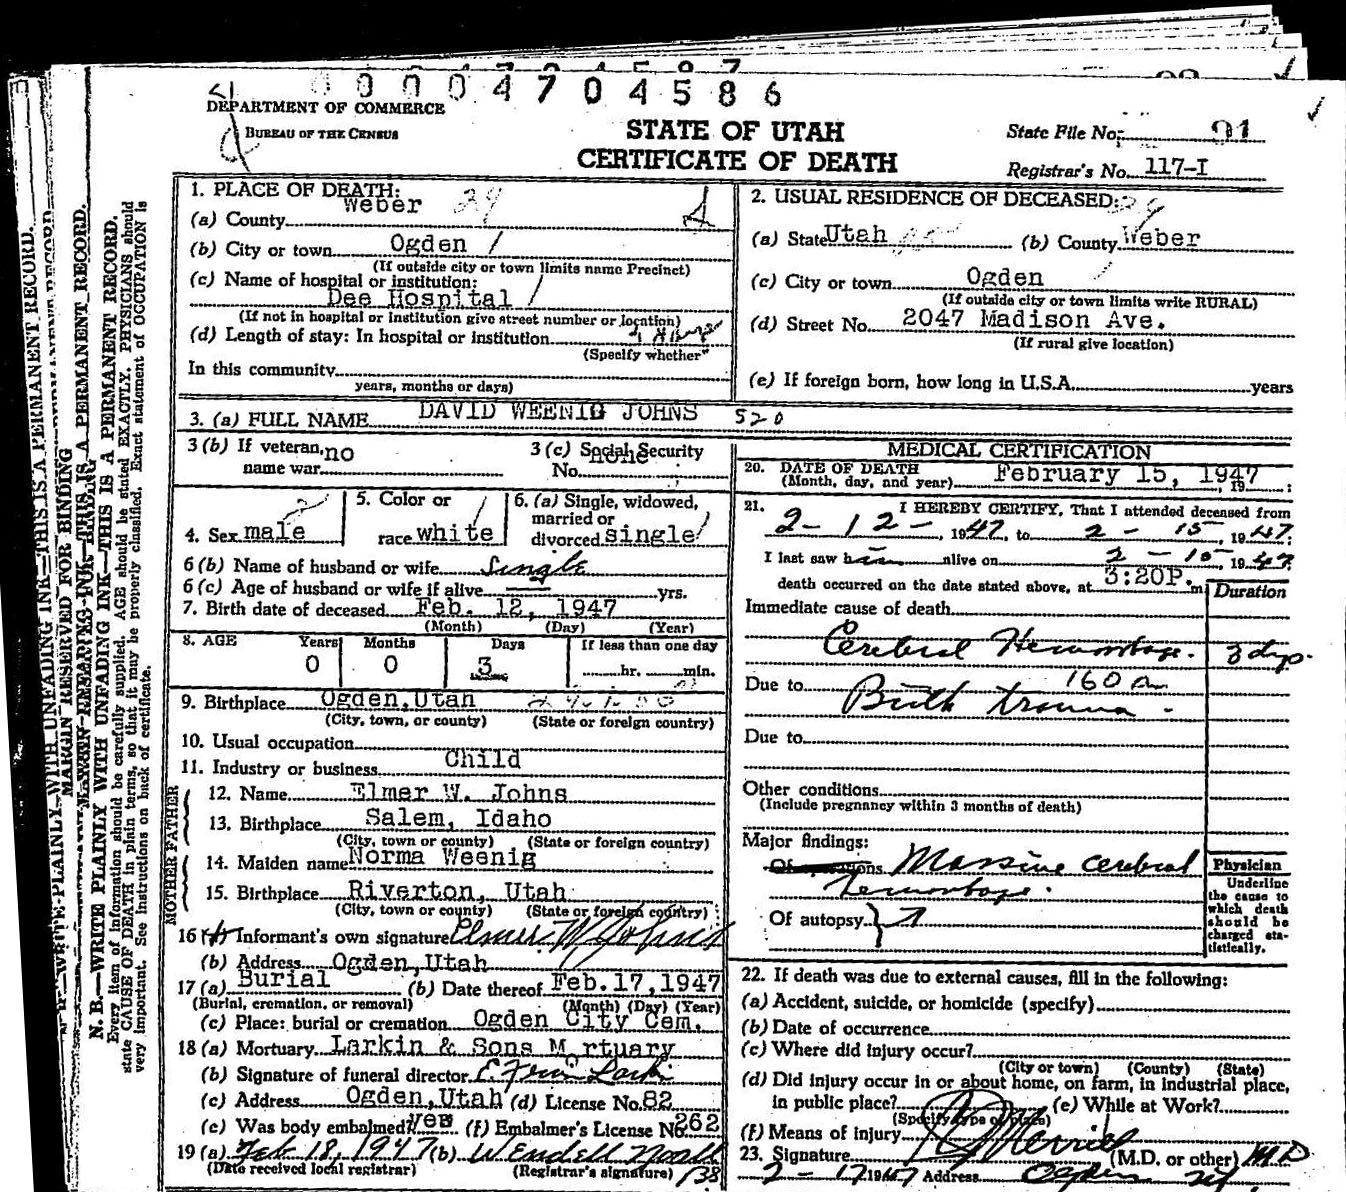 00004704586
DEPARTMENT OF COMMERCE
BUREAU OF THE CENSUS
STATE OF UTAH
CERTIFICATE OF DEATH
State File No. 91
Registrar's No. 117-I
1. PLACE OF DEATH:
(a) County Weber 29
(b) City or town Ogden
(If outside city or town limits name Precinct)
(c) Name of hospital or institution:
Dee Hospital
(If not in hospital or Institution give street number or location)
(d) Length of stay: In hospital or institution
(Specify whether
In this community
years, months or days)
2. USUAL RESIDENCE OF DECEASED: 29
(a) State Utah (b) County Weber
(c) City or town Ogden
(If outside city or town limits write RURAL)
(d) Street No. 2047 Madison Ave.
(If rural give location)
(e) If foreign born, how long in U.S.A. years
3. (a) FULL NAME DAVID WEENIG JOHNS 520
3 (b) If veteran, no
name war
3 (c) Social Security
No. none
4. Sex male
5. Color or
race white
6. (a) Single, widowed,
married or
divorced single
6 (b) Name of husband or wife Single
6 (c) Age of husband or wife if alive yrs.
7. Birth date of deceased Feb. 12, 1947
(Month) (Day) (Year)
8. AGE Years Months Days If less than one day
0 0 3 hr. min.
9. Birthplace Ogden, Utah
(City, town, or county) (State or foreign country)
10. Usual occupation
11. Industry or business Child
FATHER
12. Name Elmer W. Johns
13. Birthplace Salem, Idaho
(City, town or county) (State or foreign country)
MOTHER
14. Maiden name Norma Weenig
15. Birthplace Riverton, Utah
(City, town or county) (State or foreign country)
16 (a) Informant's own signature Elmer W Johns
(b) Address Ogden, Utah
17 (a) Burial (b) Date thereof Feb.17,1947
(Burial, cremation, or removal) (Month) (Day) (Year)
(c) Place: burial or cremation Ogden City Cem.
18 (a) Mortuary Larkin & Sons Mortuary
(b) Signature of funeral director Larkin
(c) Address Ogden, Utah (d) License No. 82
(e) Was body embalmed? Yes (f) Embalmer's License No. 262
19 (a) Feb 18, 1947 (b) Wendell Noall
(Date received local registrar) (Registrar's signature) /38
MEDICAL CERTIFICATION
20. DATE OF DEATH
(Month, day, and year) February 15, 1947, 19
21. I HEREBY CERTIFY, That I attended deceased from
2-12-, 1947, to 2-15, 1947.
I last saw him alive on 2-15, 1947
death occurred on the date stated above, at 3:20P. m
Duration
Immediate cause of death
Cerebral Hemorrhage. 3 days.
160 a
Due to Birth trauma.
Due to
Other conditions
(Include pregnancy within 3 months of death)
Major findings:
Of operations Massive cerebral
hemorrhage.
Of autopsy
Physician
Underline
the cause to
which death
should be
charged sta-
tistically.
22. If death was due to external causes, fill in the following:
(a) Accident, suicide, or homicide (specify)
(b) Date of occurrence
(c) Where did injury occur?
(City or town) (County) (State)
(d) Did injury occur in or about home, on farm, in industrial place,
in public place? (e) While at Work?
(Specify type of place)
(f) Means of injury
23. Signature Merrill (M.D. or other) M.D
2-17 1947 Address Ogden Ut.
N. B.—WRITE PLAINLY WITH UNFADING INK—THIS IS A PERMANENT RECORD.
Every item of information should be carefully supplied. AGE should be stated EXACTLY. PHYSICIANS should
state CAUSE OF DEATH in plain terms, so that it may be properly classified. Exact statement of OCCUPATION is
very important. See instructions on back of certificate.
MARGIN RESERVED FOR BINDING